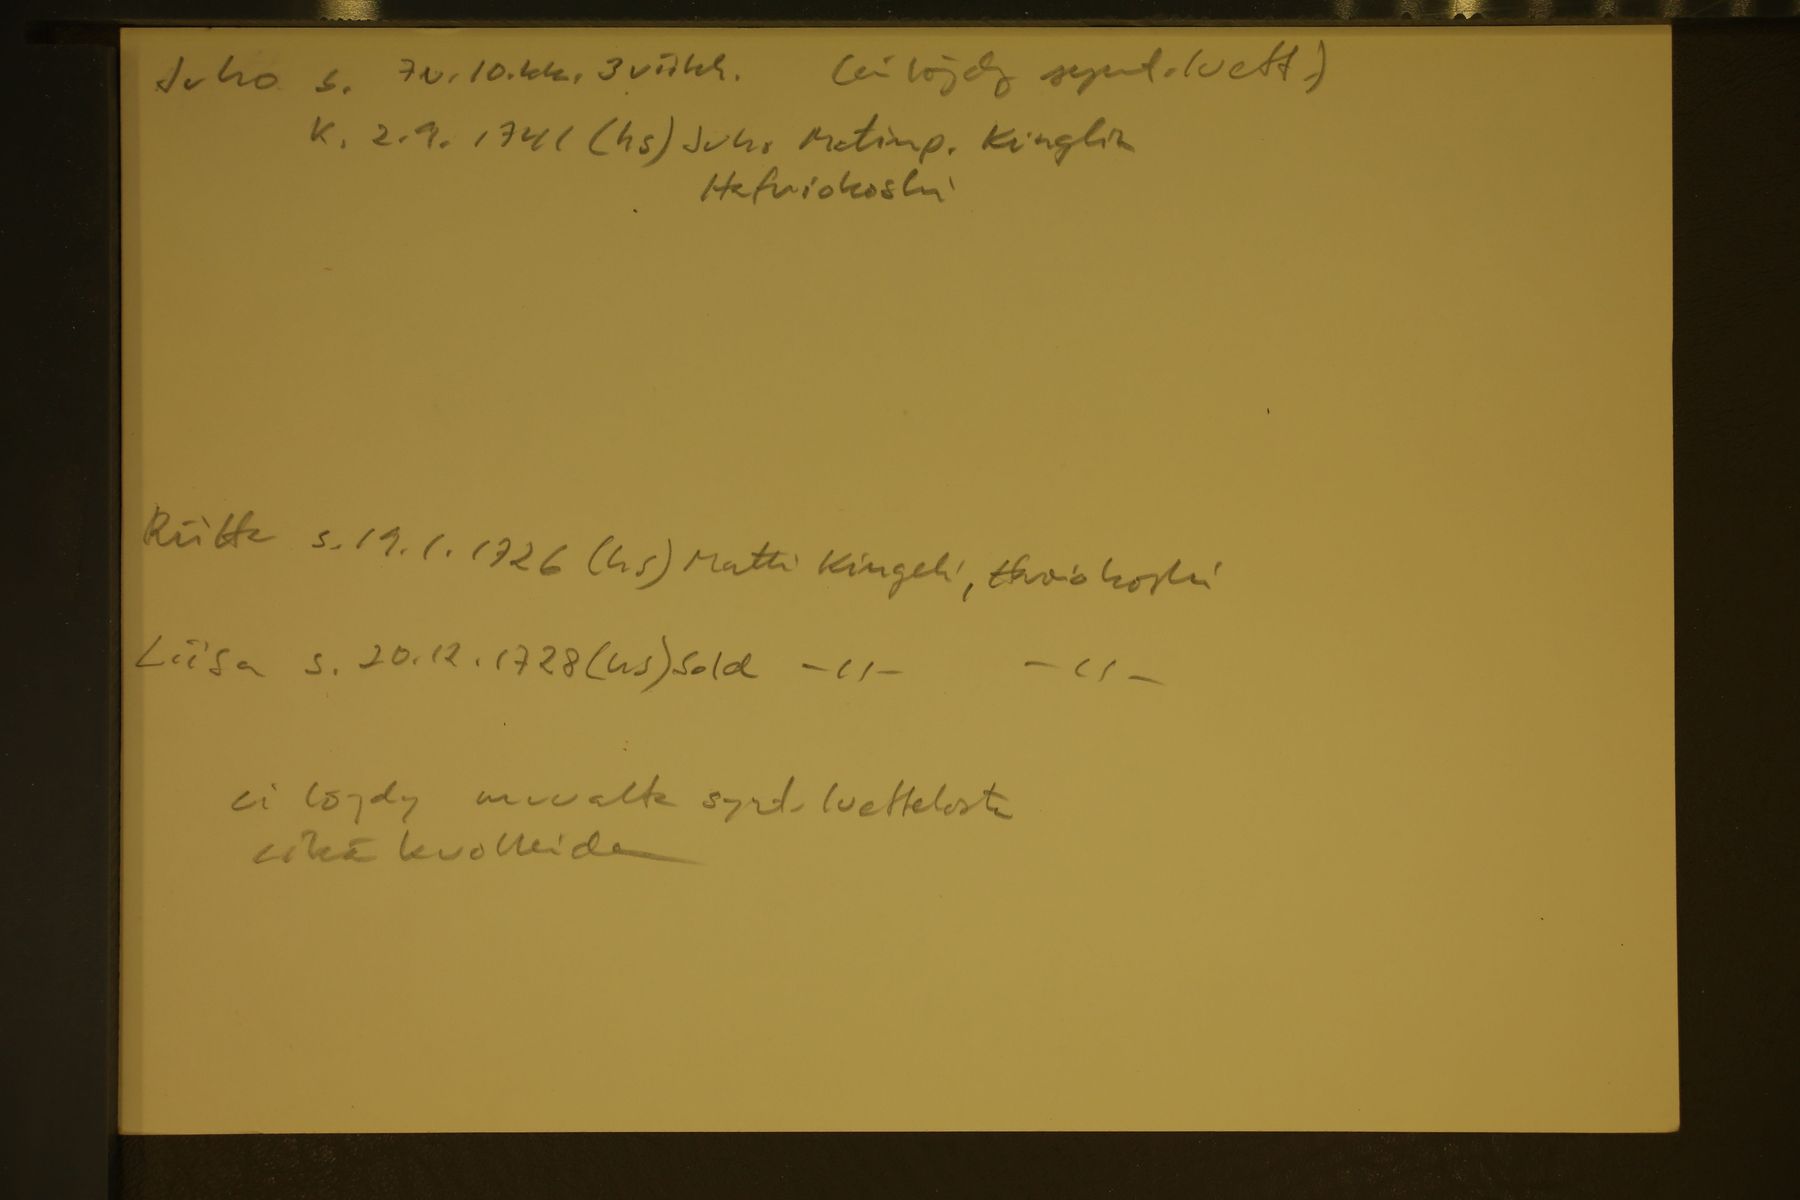 Juho s. 7v. 10.kk. 3 viikk. (ei löydy synt. luett.)
K. 2.9. 1741 (hs) Juho Matinp. Kinglin
Hafviokoski
Riitta s. 19.1. 1726 (hs) Matti Kingeli, Haviokoski
Liisa s. 20.12.1728 (hs) Sold -"- -"-
ei löydy muualta synt. luettelosta
eikä kuolleida